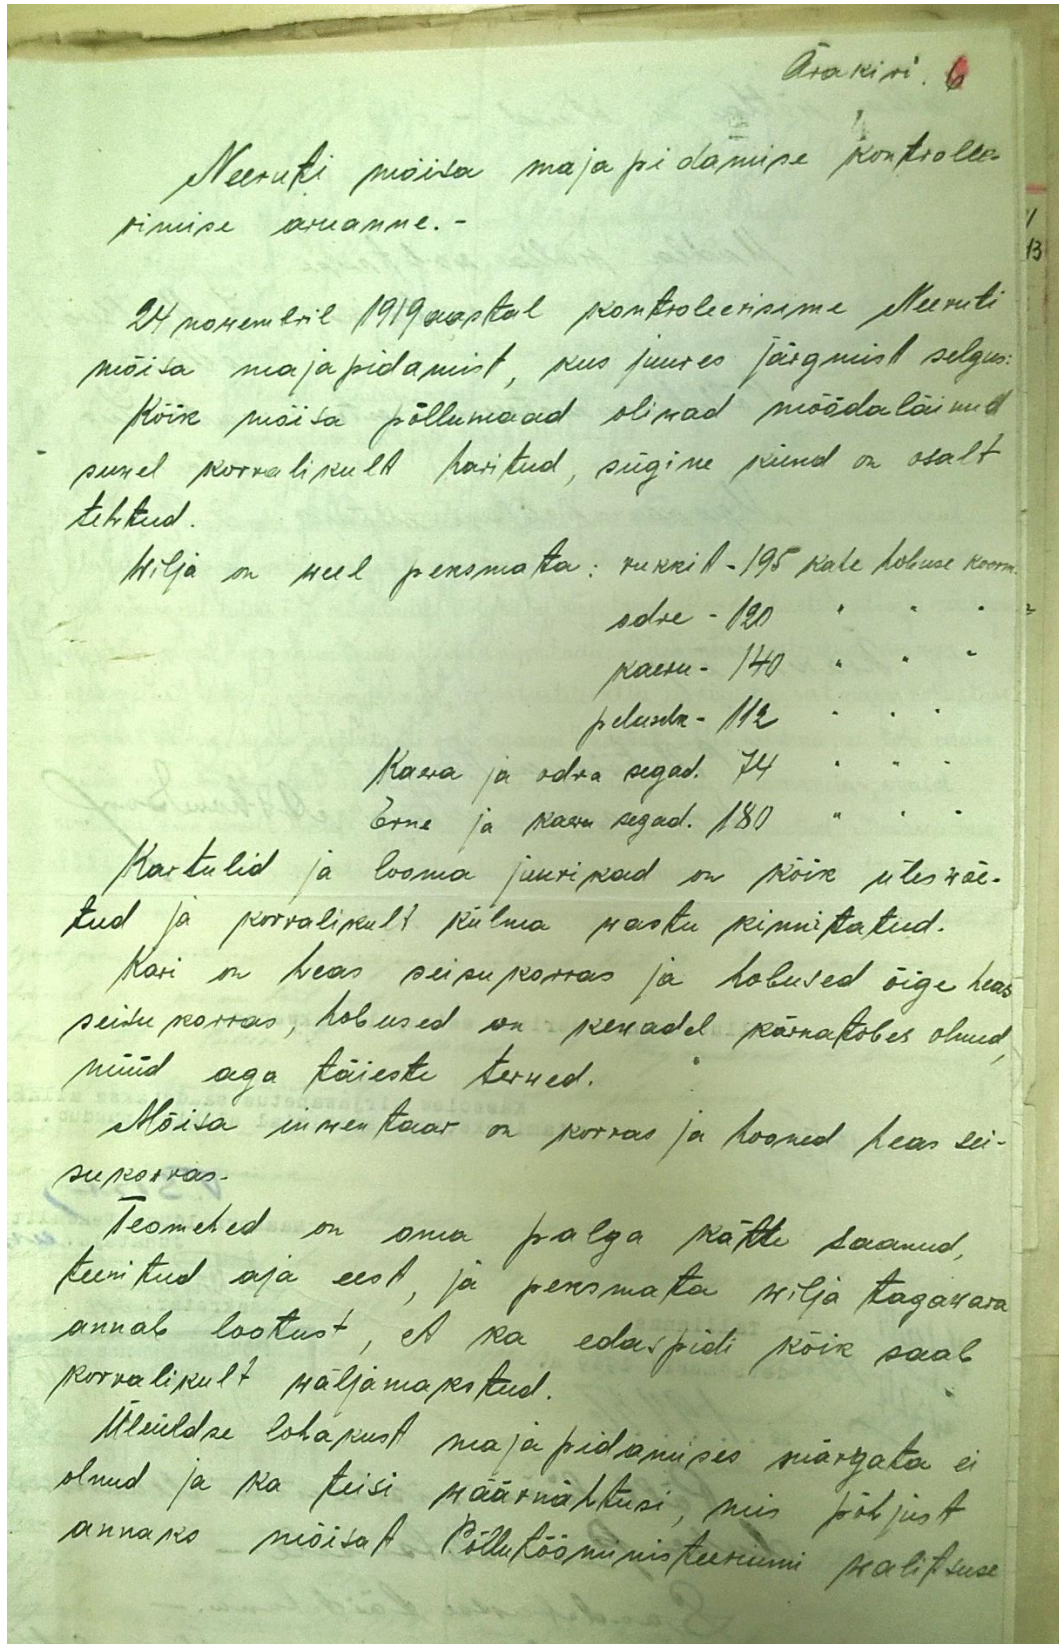 Ärakiri. 6
Neeruti mõisa majapidamise kontrollee
rimise aruanne.-
24 nowembril 1919 aastal kontroleerisime Neeruti
mõisa majapidamist, kus juures järgmist selgus:
Kõik mõisa põllumaad oliwad möödaläinud
suwel korralikult haritud, sügine künd on osalt
tehtud.
Wilja on weel peksmata: rukkit - 195 kahe hobuse koorm.
odre - 120 " " "
kaeru - 140 " " "
peluschk - 112 " " "
Kaera ja odra segad. 74 " " "
Erne ja kaera segad. 180 " " "
Kartulid ja looma juurikad on kõik üleswõe-
tud ja korralikult külma wastu kinnitatud.
Kari on heas seisukorras ja hobused õige heas
seisukorras, hobused on kewadel kärnatõbes olnud,
nüüd aga täieste terwed.
Mõisa inwentaar on korras ja hooned heas sei-
sukorras.
Teomehed on oma palga kätte saanud,
teenitud aja eest, ja peksmata wilja tagawara
annab lootust, et ka edaspidi kõik saab
korralikult wäljamakstud.
Üleüldse lohakust majapidamises märgata ei
olnud ja ka teisi wäärnähtusi, mis põhjust
annaks mõisat Põllutööministeeriumi walitsuse